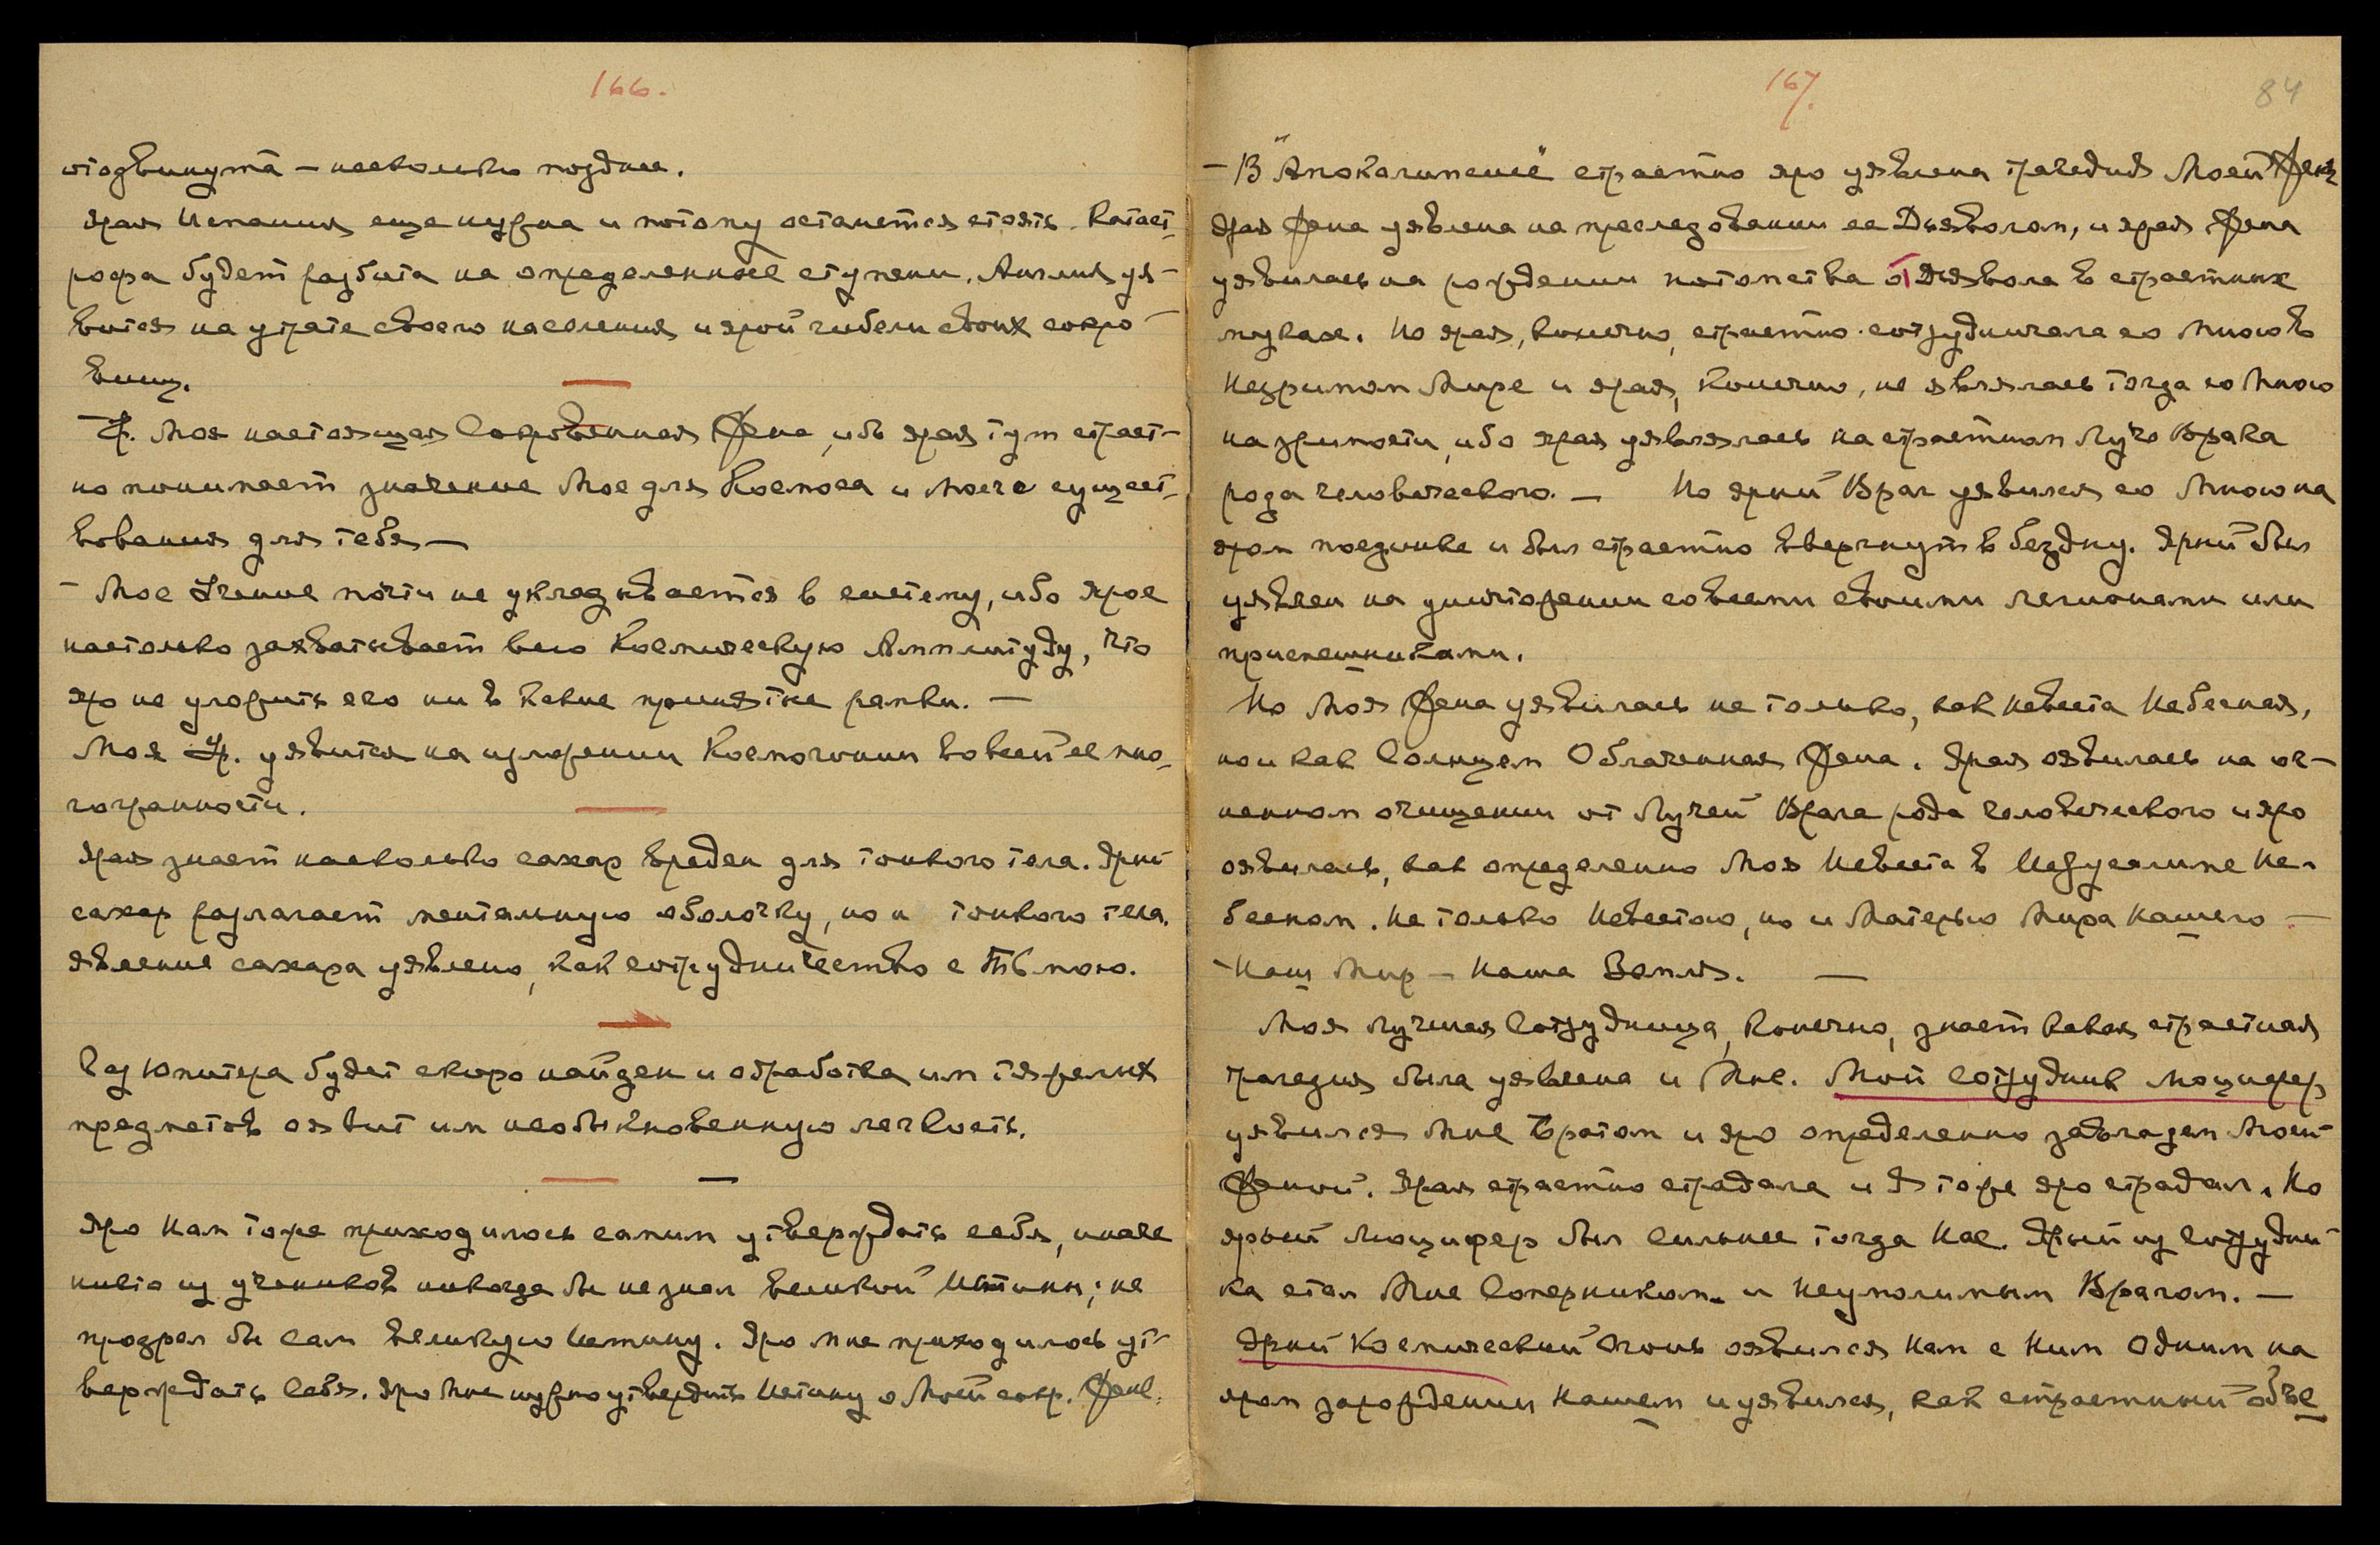 166.
отодвинута — несколько позднее.
Ярая Испания еще нужна и потому останется стоять. Катаст-
рофа будет разбита на определенные ступени. Англия уя-
вится на утрате своего населения и ярой гибели своих сокро-
вищ.
Ур. Моя настоящая Сокровенная Жена, ибо ярая тут страст-
но понимает значение Мое для Космоса и Моего сущест-
вования для тебя —
— Мое Учение почти не укладывается в систему, ибо ярое
настолько захватывает всю Космическую Амплитуду, что
яро не уложить его ни в какие принятые рамки. —
Моя Ур. уявится на изложении Космогонии во всей ее мно-
гогранности.
Ярая знает насколько сахар вреден для тонкого тела. Ярый
сахар разлагает ментальную оболочку, но и тонкого тела.
Явление сахара уявлено, как сотрудничество с Тьмою.
Газ Юпитера будет скоро найден и обработка им тяжелых
предметов оявит им необыкновенную легкость.
Яро Нам тоже приходилось самим утверждать себя, иначе
никто из учеников никогда бы не знал великой Истины; не
прозрел бы сам великую Истину. Яро Мне приходилось ут-
верждать Себя. Яро Мне нужно утвердить Истину о Моей сокр. Жене.
167.
84
— В "Апокалипсисе" страстно яро уявлена трагедия Моей Жены
Ярая Жена уявлена на преследовании ее Дьяволом, и ярая Жена
уявилась на рождении потомства от Дьявола в страстных
муках. Но ярая, конечно, страстно сотрудничала со Мною в
Незримом Мире и ярая, конечно, не являлась тогда со Мною
на зримости, ибо ярая уявлялась на страстном Луче Врага
рода человеческого. — Но ярый Враг уявился со Мною на
яром поединке и был страстно ввергнут в бездну. Ярый был
уявлен на уничтожении со всеми своими легионами или
приспешниками.
Но Моя Жена уявилась не только, как Невеста Небесная,
но и как Солнцем Облаченная Жена. Ярая оявилась на ог-
ненном очищении от Лучей Врага рода человеческого и яро
оявилась, как определенно Моя Невеста в Иерусалиме Не-
бесном. Не только Невестою, но и Матерью Мира Нашего —
— Наш Мир — Наша Земля. —
Моя лучшая Сотрудница, конечно, знает какая страстная
трагедия была уявлена и Мне. Мой Сотрудник Люцифер
уявился Мне Братом и яро определенно завладел Моей
Женой. Ярая страстно страдала и Я тоже яро страдал. Но
ярый Люцифер был сильнее тогда Нас. Ярый из Сотрудни-
ка стал Мне Соперником и неумолимым Врагом. —
Ярый Космический Огонь оявился Нам с Ним Одним на
яром зарождении Нашем и уявился, как страстный объе